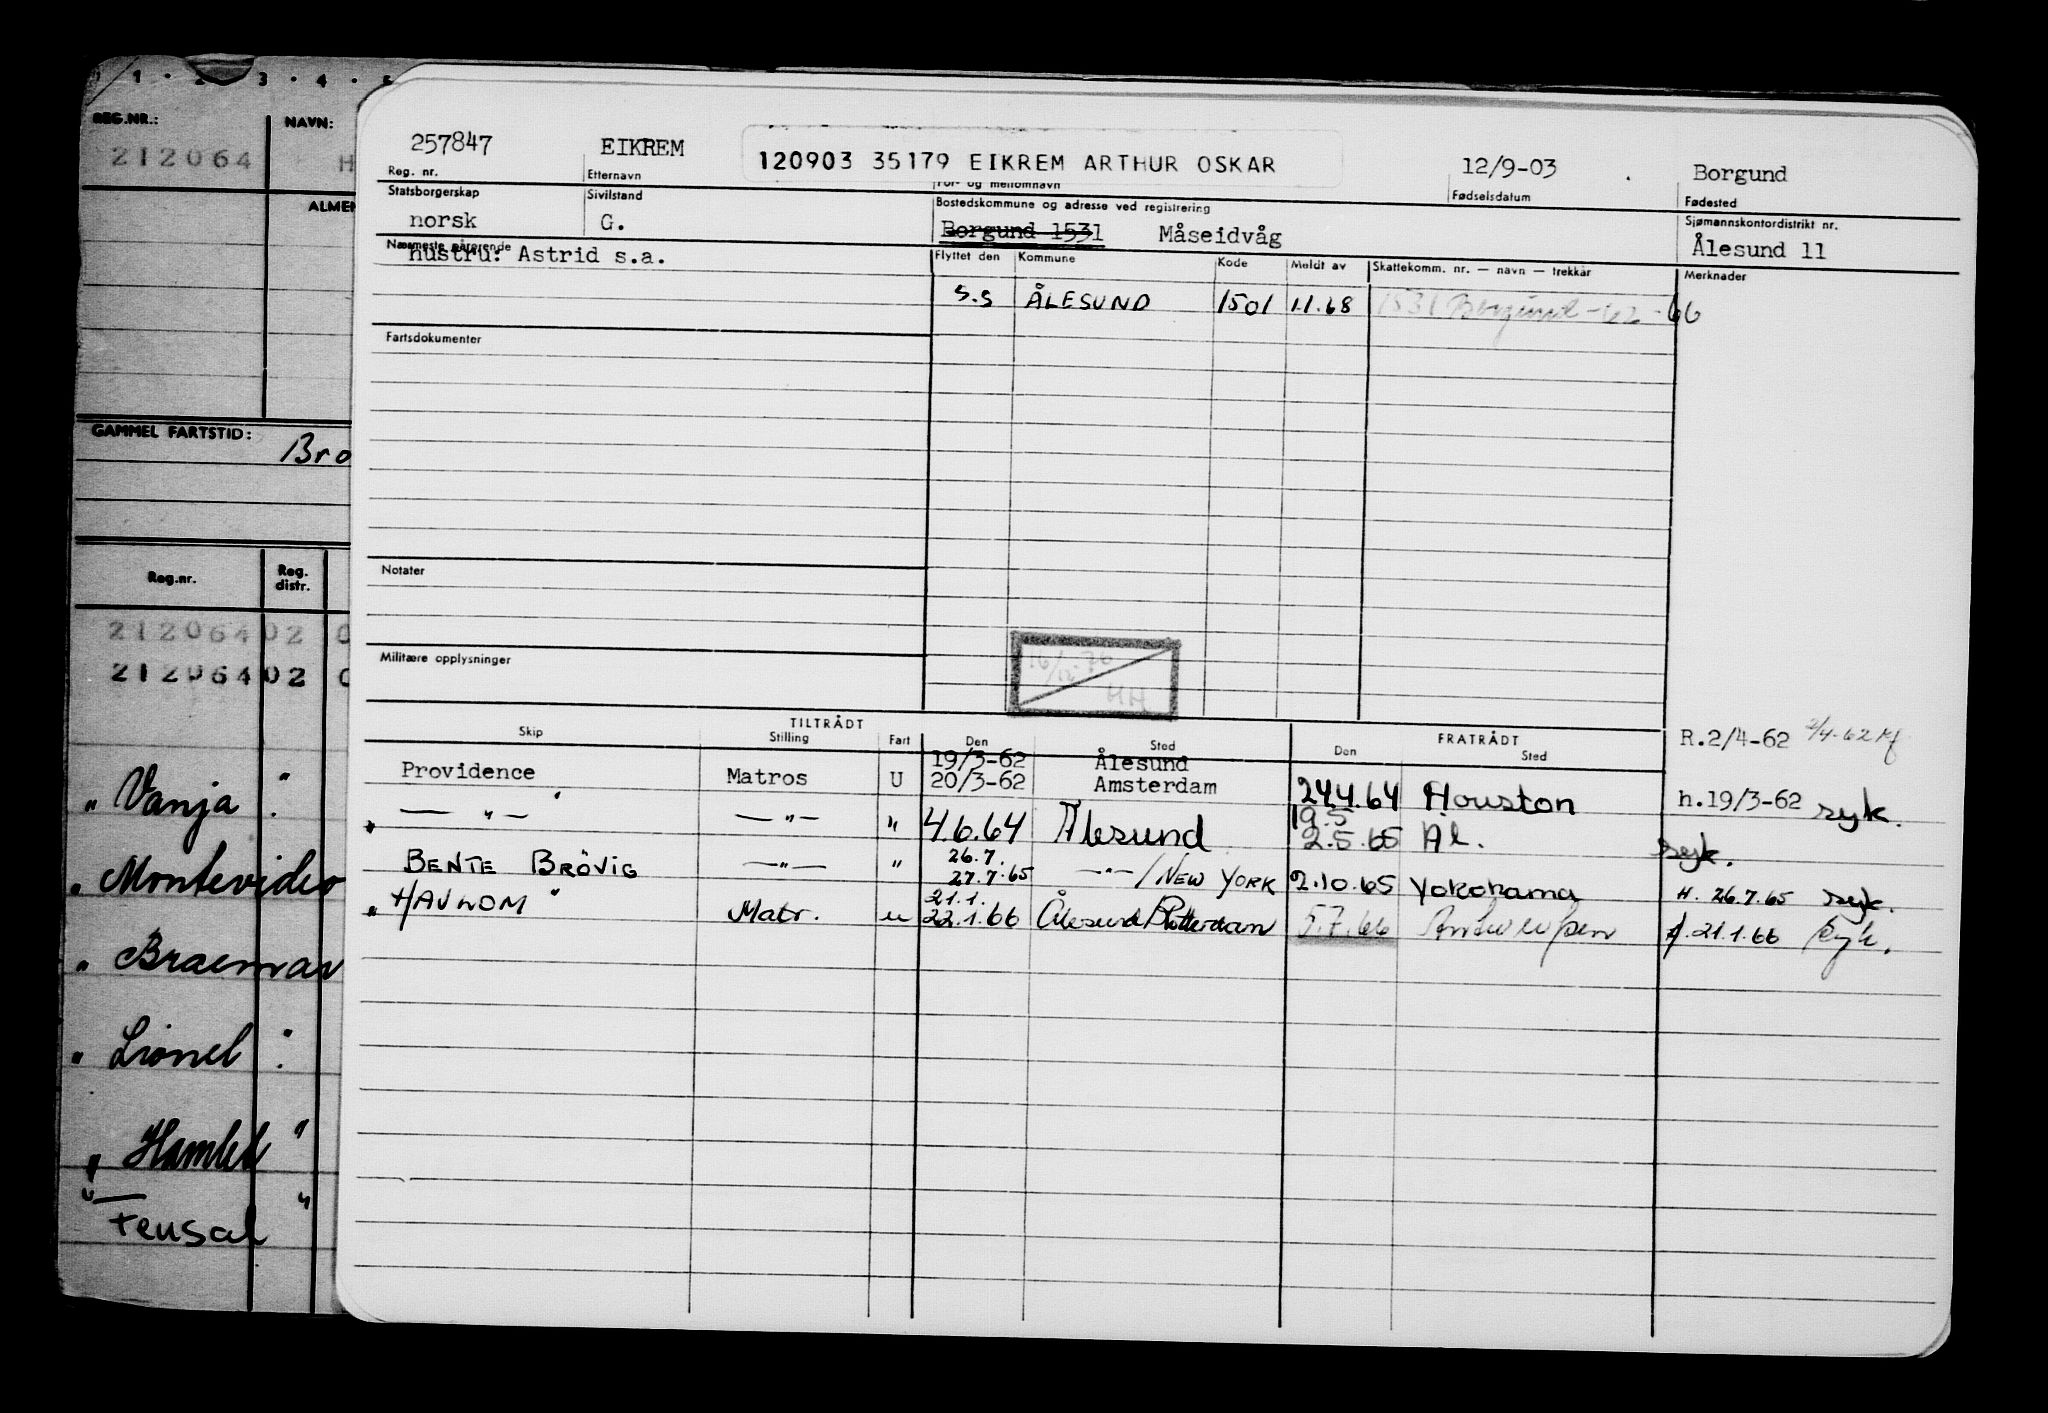 1 · 2 · 3 · 4 · 5
REG.NR.: NAVN:
212064 H
ALMEN
GAMMEL FARTSTID:
Bro
Reg.nr. Reg. distr.
21206402 0
21206402 0
" Vanja "
" Montevideo
" Braemar
" Lionel "
" Hamlet "
257847 EIKREM 120903 35179 EIKREM ARTHUR OSKAR 12/9-03 Borgund
Reg. nr. Etternavn For- og mellomnavn Fødselsdatum Fødested
Statsborgerskap Sivilstand Bostedskommune og adresse ved registrering Sjømannskontordistrikt nr.
norsk G. Borgund 1531 Måseidvåg Ålesund 11
Nærmeste pårørende Flyttet den Kommune Kode Meldt av Skattekomm. nr. — navn — trekkår Merknader
hustru: Astrid s.a.
S.S ÅLESUND 1501 11.68 1531 Borgund -62 -66
Fartsdokumenter
Notater
Militære opplysninger
HH
TILTRÅDT FRATRÅDT
Skip Stilling Fart Den Sted Den Sted
R.2/4-62 2/4-62
19/3-62 Ålesund
Providence Matros U 20/3-62 Amsterdam 24.4.64 Houston h.19/3-62 syk.
19.5
— " — " — " — " 4.6.64 Ålesund 2.5.65 Ål. syk.
26.7.
BENTE BRÖVIG — " — " 27.7.65 — " — / NEW YORK 2.10.65 Yokohama H. 26.7.65 syk.
21.1.
" HAVMOM " Matr. u 22.1.66 Ålesund/Rotterdam 5.7.66 Antwerpen 21.1.66 syk.